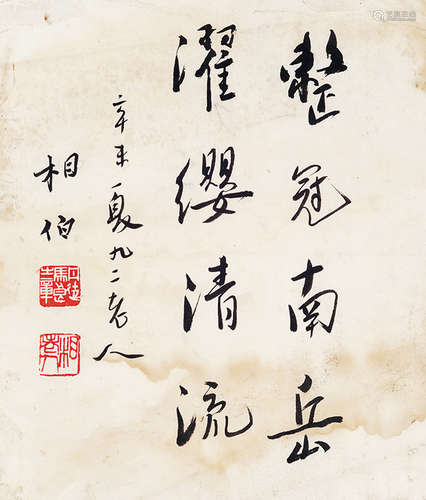 整冠南岳
濯缨清流
辛未夏九二老人
相伯